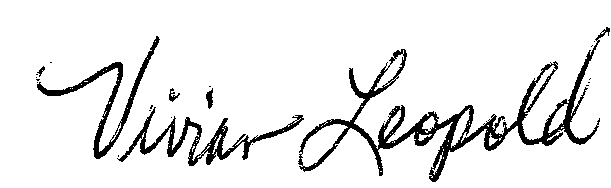 Vivian Leopold